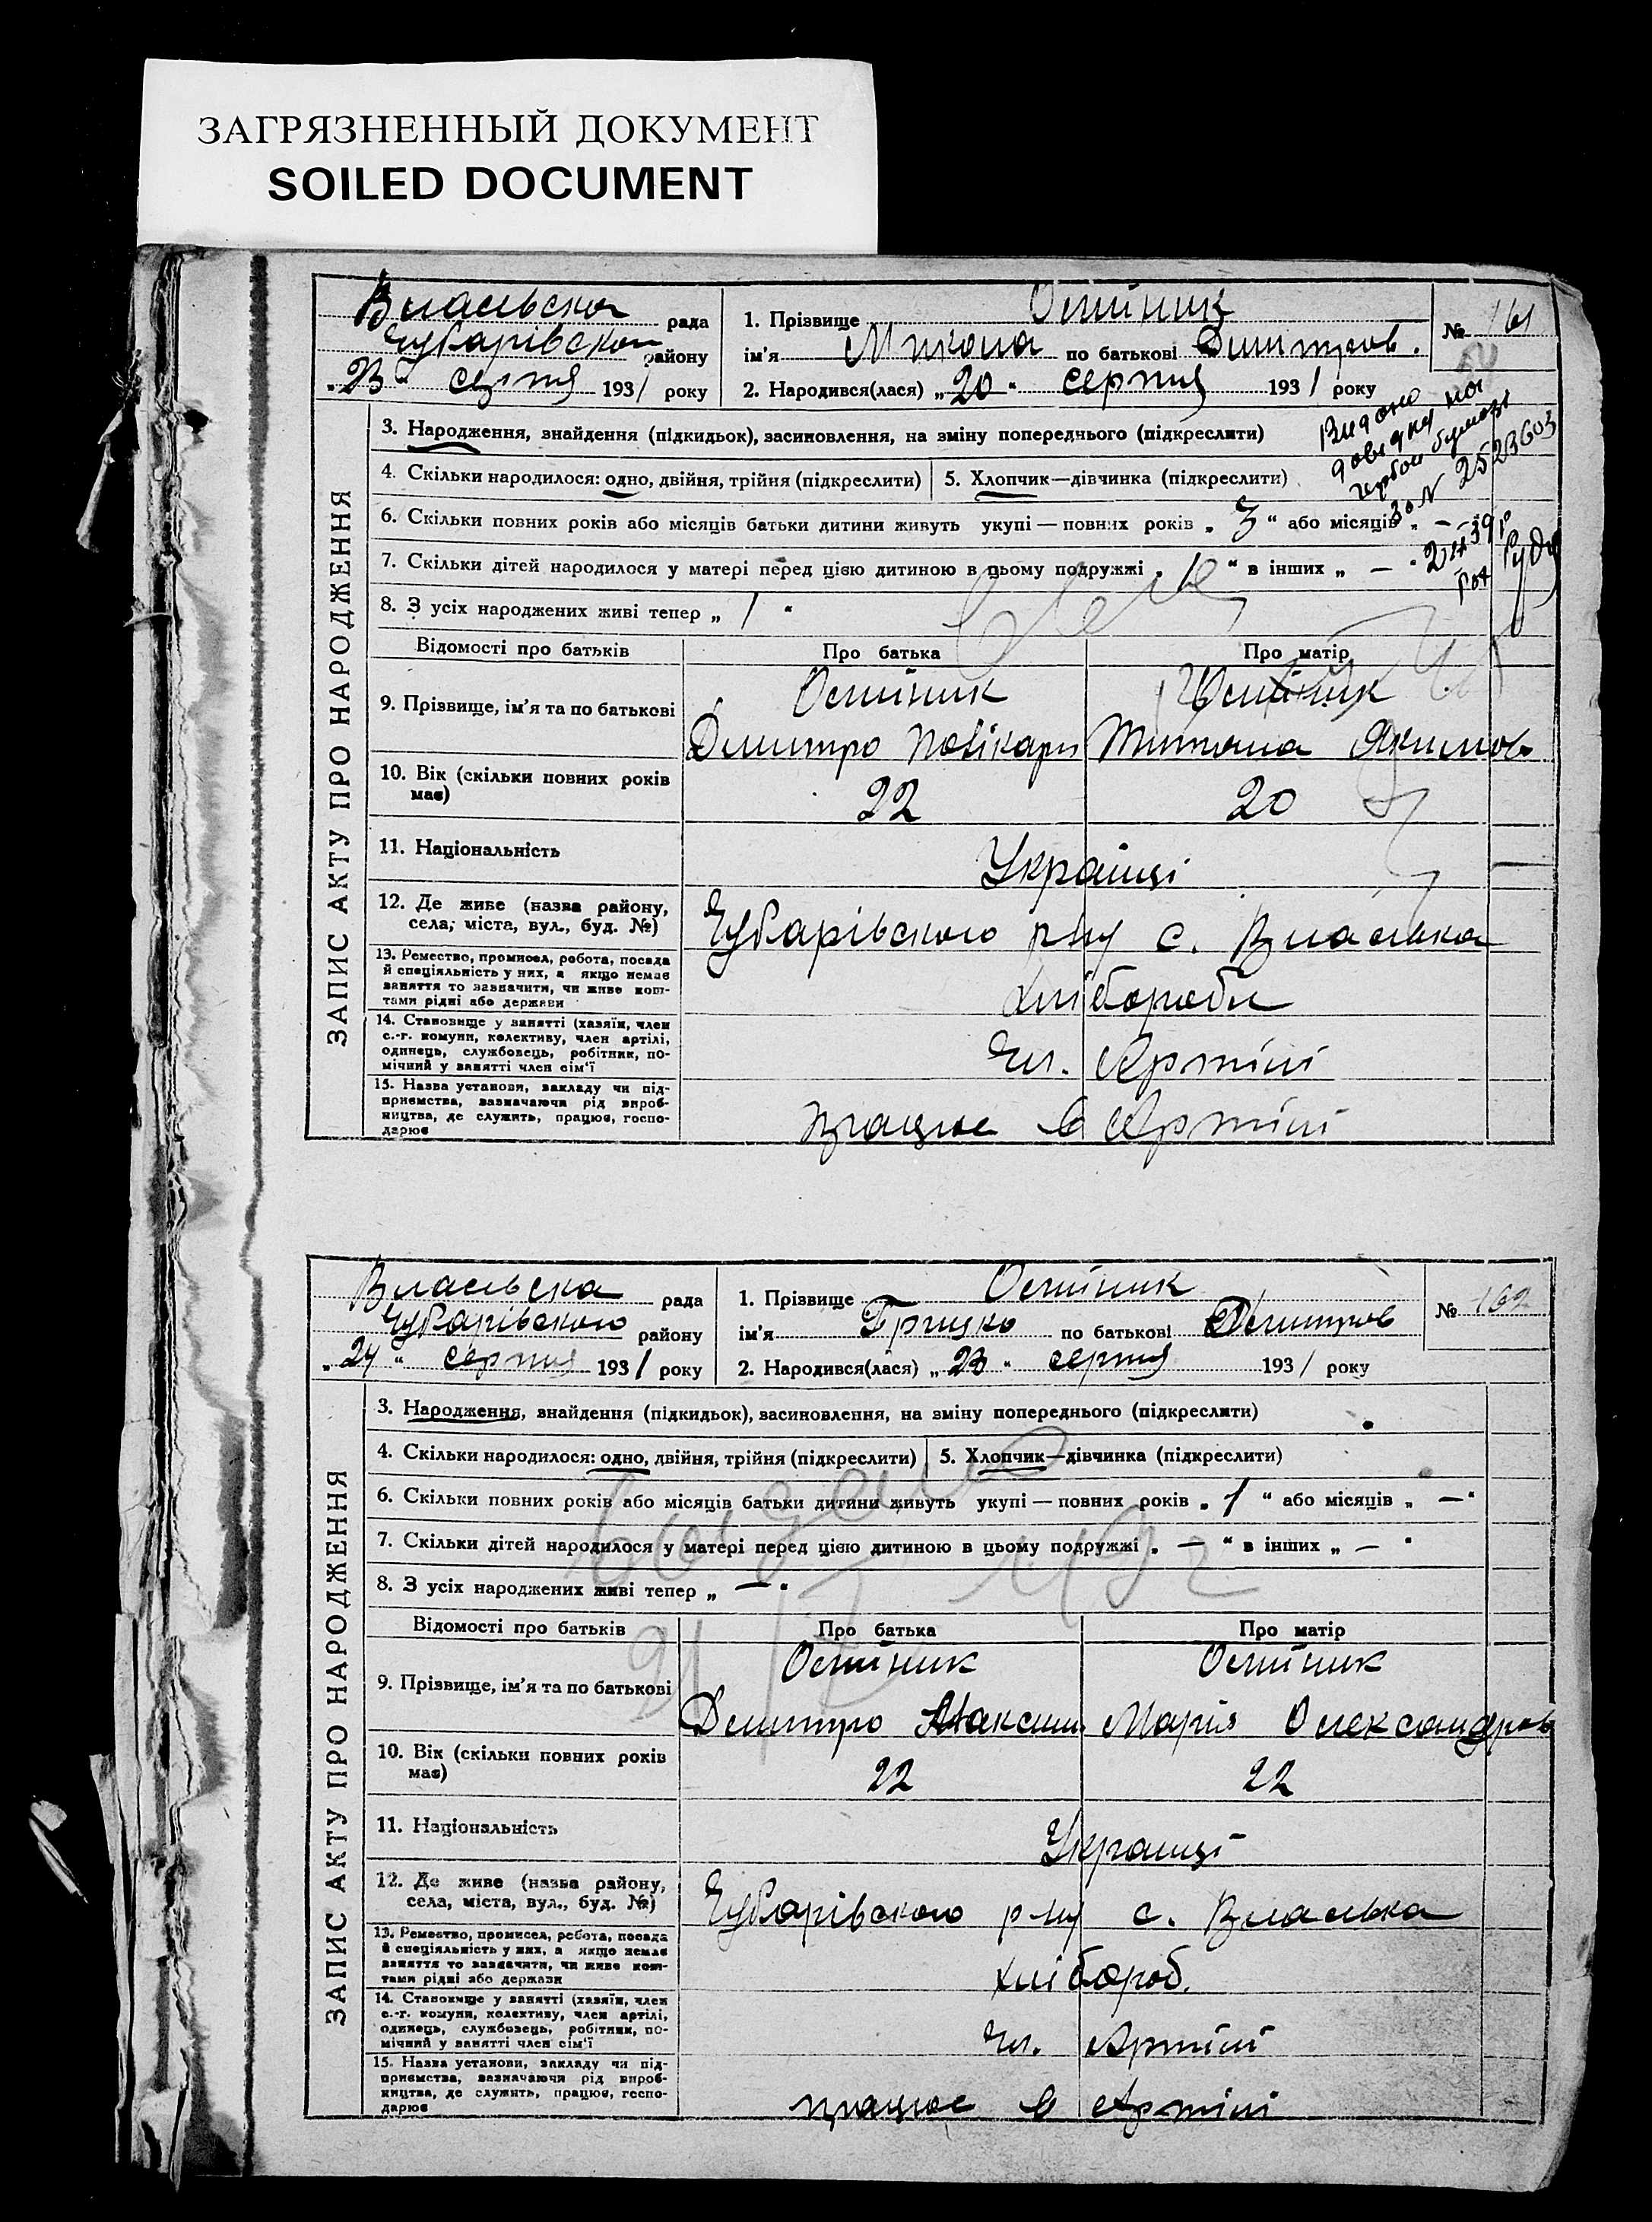 ЗАГРЯЗНЕННЫЙ ДОКУМЕНТ
SOILED DOCUMENT
ЗАПИС АКТУ ПРО НАРОДЖЕННЯ
Власівська рада
Чубарівськ району
„23“ серпня 1931 року
1. Прізвище Остіник
ім'я Микола по батькові Дмитров.
№ 161
2. Народився(лася) „20“ серпня 1931 року
3. Народження, знайдення (підкидьок), засиновлення, на зміну попереднього (підкреслити)
4. Скільки народилося: одно, двійня, трійня (підкреслити)
5. Хлопчик—дівчинка (підкреслити)
Видано
довідку на
гербов бумазі
за № 2523603
6. Скільки повних років або місяців батьки дитини живуть укупі — повних років „3“ або місяців „—“
7. Скільки дітей народилося у матері перед цією дитиною в цьому подружжі „1“ в інших „—“
8. З усіх народжених живі тепер „1“
Відомості про батьків
Про батька
Про матір
9. Прізвище, ім'я та по батькові
Остіник
Остіник
Дмитро Полікарп
Титяна Якимов
10. Вік (скільки повних років має)
22
20
11. Національність
Українці
12. Де живе (назва району, села, міста, вул., буд. №)
Чубарівського р-ну с. Власівка
13. Ремество, промисел, робота, посада й спеціяльність у них, а якщо немає заняття то зазначити, чи живе коштами рідні або держави
хлібороби
14. Становище у занятті (хазяїн, член с.-г. комуни, колективу, член артілі, одинець, службовець, робітник, помічний у занятті член сім'ї
Чл. Артілі
15. Назва установи, закладу чи підприємства, зазначаючи рід виробництва, де служить, працює, господарює
працює в Артілі
ЗАПИС АКТУ ПРО НАРОДЖЕННЯ
Власівська рада
Чубарівського району
„24“ серпня 1931 року
1. Прізвище Остіник
ім'я Грицко по батькові Дмитров
№ 162
2. Народився(лася) „23“ серпня 1931 року
3. Народження, знайдення (підкидьок), засиновлення, на зміну попереднього (підкреслити)
4. Скільки народилося: одно, двійня, трійня (підкреслити)
5. Хлопчик—дівчинка (підкреслити)
6. Скільки повних років або місяців батьки дитини живуть укупі — повних років „1“ або місяців „—“
7. Скільки дітей народилося у матері перед цією дитиною в цьому подружжі „—“ в інших „—“
8. З усіх народжених живі тепер „—“
Відомості про батьків
Про батька
Про матір
9. Прізвище, ім'я та по батькові
Остіник
Остіник
Дмитро Максим
Марія Олександров
10. Вік (скільки повних років має)
22
22
11. Національність
Українці
12. Де живе (назва району, села, міста, вул., буд. №)
Чубарівського р-ну с. Власівка
13. Ремество, промисел, робота, посада й спеціяльність у них, а якщо немає заняття то зазначити, чи живе коштами рідні або держави
хлібороб.
14. Становище у занятті (хазяїн, член с.-г. комуни, колективу, член артілі, одинець, службовець, робітник, помічний у занятті член сім'ї
Чл. Артілі
15. Назва установи, закладу чи підприємства, зазначаючи рід виробництва, де служить, працює, господарює
працює в Артілі